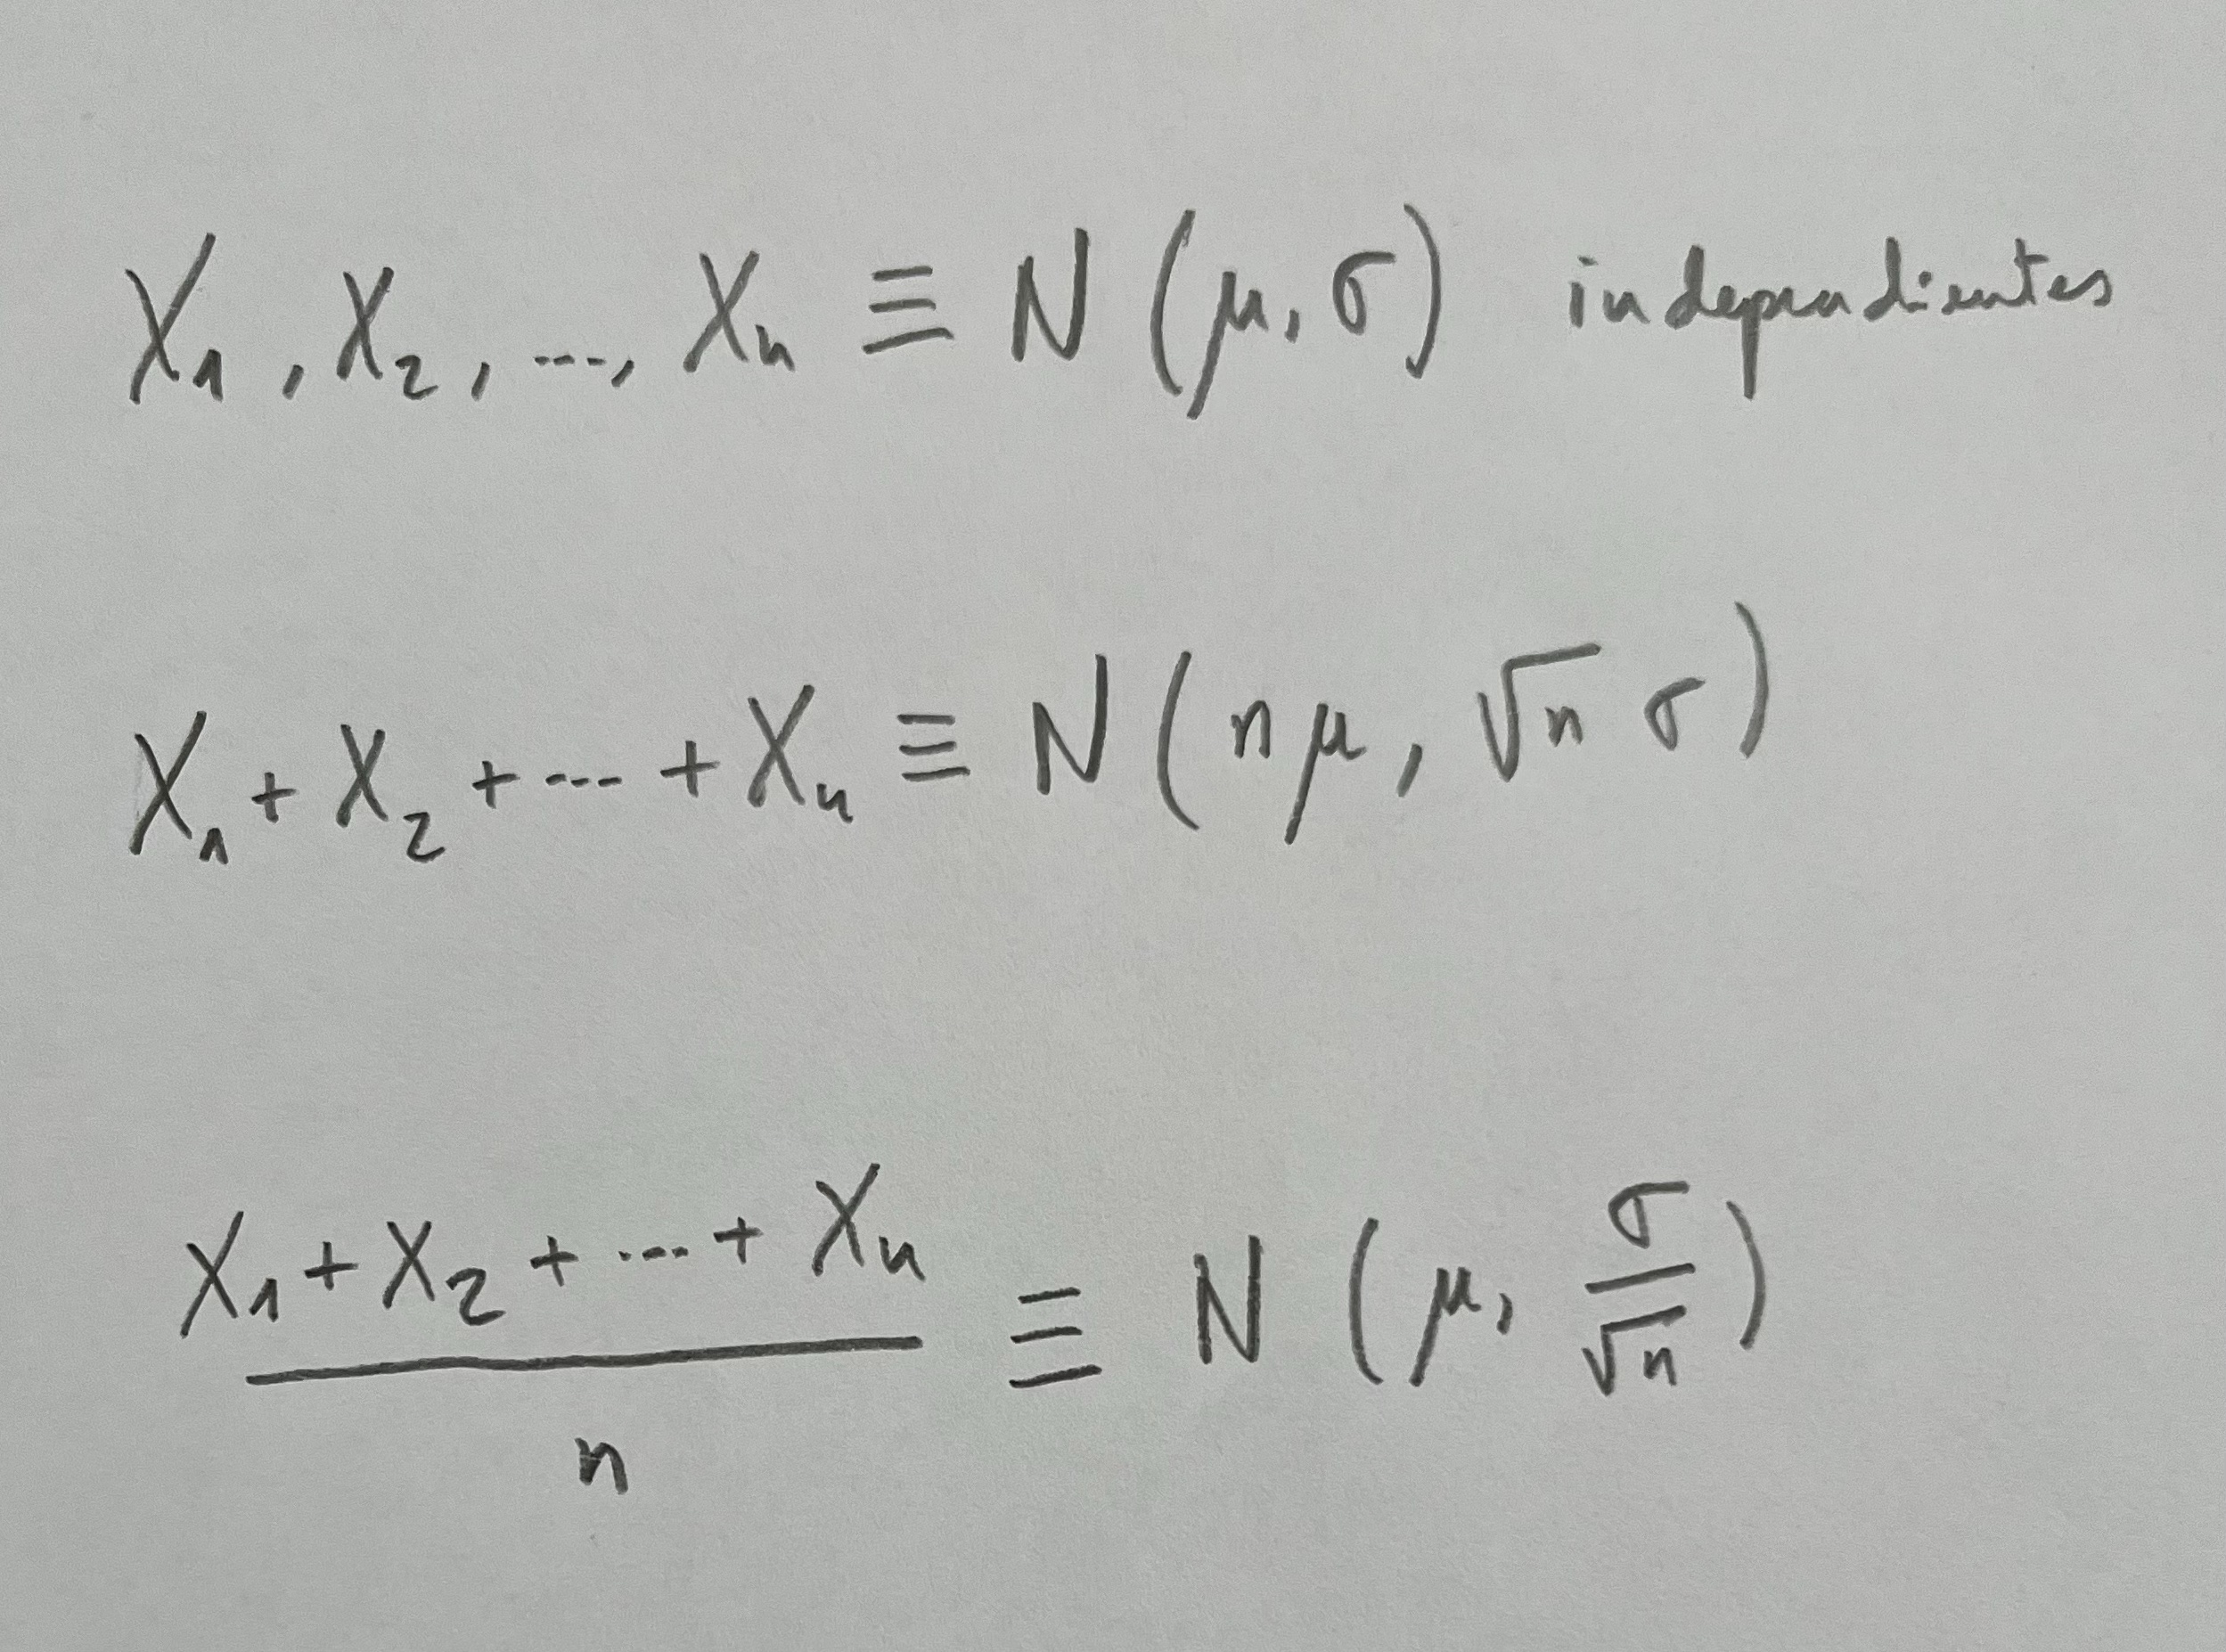 X₁, X₂, ..., Xₙ ≡ N(μ, σ) independientes
X₁ + X₂ + ... + Xₙ ≡ N(nμ, √n σ)
(X₁ + X₂ + ... + Xₙ)/n ≡ N(μ, σ/√n)